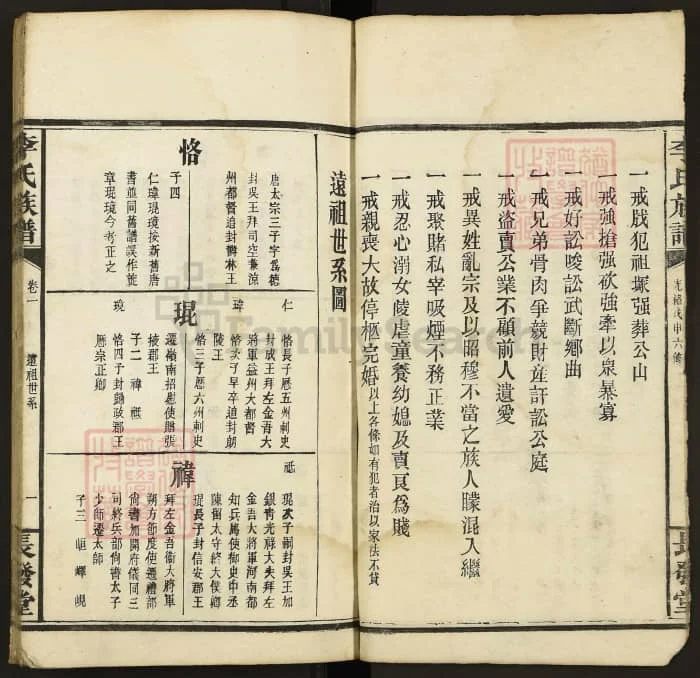 李氏族譜
光緒戊申六修
長發堂
一戒戕犯祖塚强葬公山
一戒強搶强砍強牽以衆暴寡
一戒好訟唆訟武斷鄉曲
一戒兄弟骨肉爭競財產訐訟公庭
一戒盜賣公業不顧前人遺愛
一戒異姓亂宗及以昭穆不當之族人矇混入繼
一戒聚賭私宰吸煙不務正業
一戒忍心溺女凌虐童養幼媳及賣良爲賤
一戒親喪大故停柩完婚以上各條如有犯者治以家法不貸
遠祖世系圖
恪
唐太宗三子字爲德
封吳王拜司空兼涼
州都督追封鬱林王
子四
仁瑋琨璄按新舊唐
書並同舊譜誤作
章琨璄今考正之
仁
恪長子歷五州刺史
封成王拜左金吾大
將軍益州大都督
瑋
恪次子早卒追封朗
陵王
琨
恪三子歷六州刺史
遷嶺南招慰使贈張
掖郡王
子二 禕 祗
恪四子封歸政郡王
歷宗正卿
祗
琨次子嗣封吳王加
銀青光祿大夫拜左
金吾大將軍河南都
知兵馬使御史中丞
陳留太守終太僕卿
禕
琨長子封信安郡王
拜左金吾衛大將軍
朔方節度使遷禮部
尚書加開府儀同三
司終兵部尚書太子
少師遷太師
子三 峘 嶧 峴
李氏族譜
卷一
遠祖世系
一
長發堂
FamilySearch